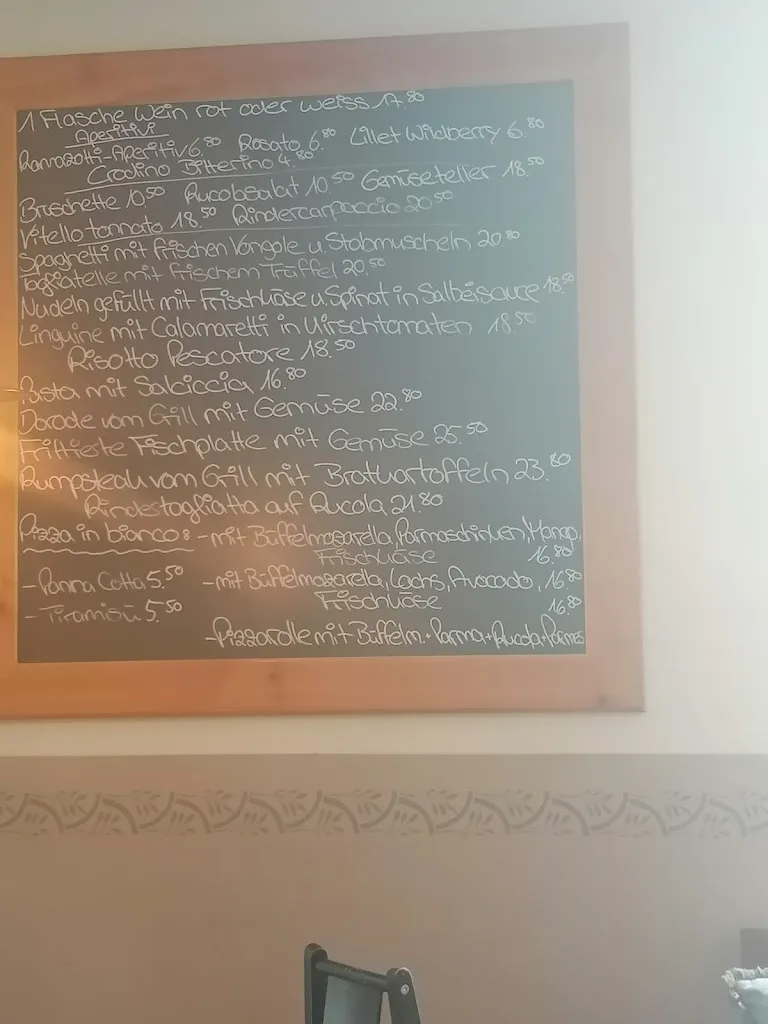 1 Flasche Wein rot oder weiss 17.80
Aperitivi
Ramazotti-Aperitiv 6.80 Rosato 6.80 Lillet Wildberry 6.80
Crodino Bitterino 4.80
Bruschette 10.50 Rucolasalat 10.50 Gemüseteller 18.50
Vitello tonnato 18.50 Rindercarpaccio 20.50
Spaghetti mit frischen Vongole u. Stabmuscheln 20.80
Tagliatelle mit frischem Trüffel 20.50
Nudeln gefüllt mit Frischkäse u. Spinat in Salbeisauce 18.50
Linguine mit Calamaretti in Kirschtomaten 18.50
Risotto Pescatore 18.50
Pasta mit Salciccia 16.80
Dorade vom Grill mit Gemüse 22.80
Frittierte Fischplatte mit Gemüse 25.50
Rumpsteak vom Grill mit Bratkartoffeln 23.80
Rindestagliatta auf Rucola 21.80
Pizza in bianco: - mit Büffelmozarella, Parmaschinken, Mango,
Frischkäse 16.80
- Panna Cotta 5.50 - mit Büffelmozarella, Lachs, Avocado, 16.80
- Tiramisú 5.50 Frischkäse 16.80
- Pizzarolle mit Büffelm. + Parma + Rucola + Parmes